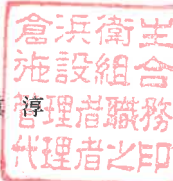 倉浜衛生
施設組合
管理者職務
代理者之印
淳